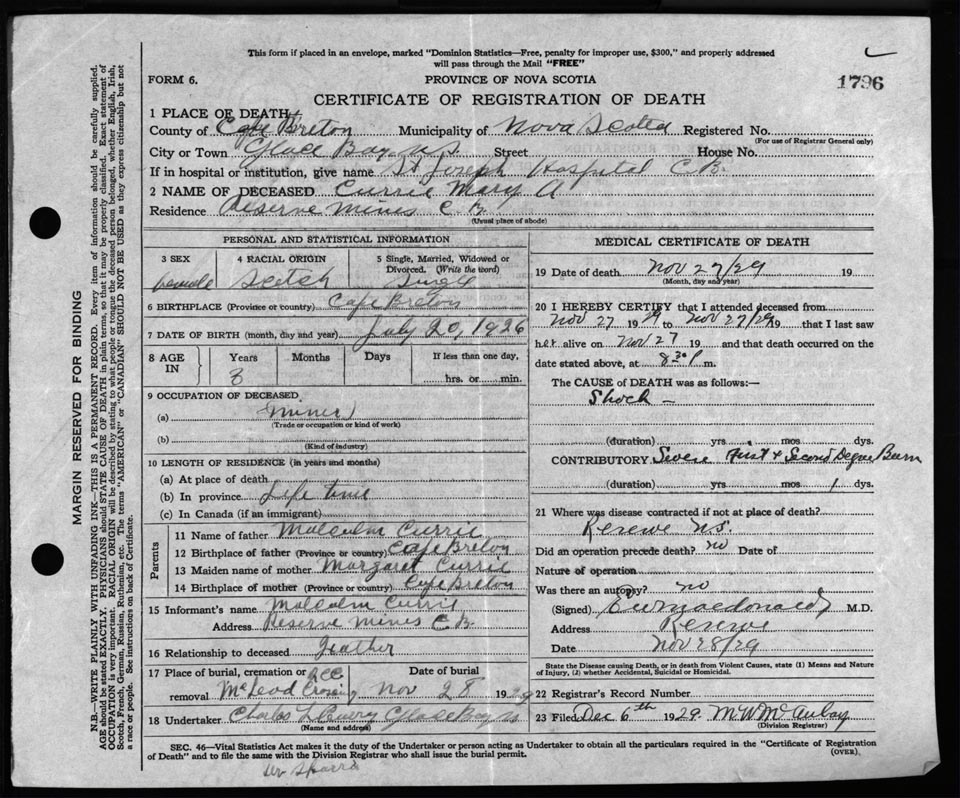 This form if placed in an envelope, marked "Dominion Statistics—Free, penalty for improper use, $300," and properly addressed
will pass through the Mail "FREE"
FORM 6.
PROVINCE OF NOVA SCOTIA
1796
CERTIFICATE OF REGISTRATION OF DEATH
1 PLACE OF DEATH
County of Cape Breton Municipality of Nova Scotia Registered No.
(For use of Registrar General only)
City or Town Glace Bay N.S. Street House No.
If in hospital or institution, give name St Joseph Hospital C.B.
2 NAME OF DECEASED Currie Mary A
Residence Reserve Mines C.B.
(Usual place of abode)
PERSONAL AND STATISTICAL INFORMATION
3 SEX 4 RACIAL ORIGIN 5 Single, Married, Widowed or
Divorced. (Write the word)
female Scotch Single
6 BIRTHPLACE (Province or country) Cape Breton
7 DATE OF BIRTH (month, day and year) July 20, 1926
8 AGE IN Years Months Days If less than one day,
3 hrs. or min.
9 OCCUPATION OF DECEASED
(a)
(Trade or occupation or kind of work)
(b)
(Kind of industry)
10 LENGTH OF RESIDENCE (in years and months)
(a) At place of death
(b) In province Life time
(c) In Canada (if an immigrant)
Parents
11 Name of father Malcolm Currie
12 Birthplace of father (Province or country) Cape Breton
13 Maiden name of mother Margaret Currie
14 Birthplace of mother (Province or country) Cape Breton
15 Informant's name Malcolm Currie
Address Reserve Mines C.B.
16 Relationship to deceased Father
17 Place of burial, cremation or Date of burial
removal McLeod Crossing Nov 28 1929
18 Undertaker Charles Curry Glace Bay
(Name and address)
MEDICAL CERTIFICATE OF DEATH
19 Date of death Nov 27/29 19
(Month, day and year)
20 I HEREBY CERTIFY that I attended deceased from
Nov 27 1929 to Nov 27/29 19 that I last saw
her alive on Nov 27 19 and that death occurred on the
date stated above, at 8 30 P m.
The CAUSE of DEATH was as follows:—
Shock —
(duration) yrs mos dys.
CONTRIBUTORY Severe First & Second Degree Burn
(duration) yrs mos 1 dys.
21 Where was disease contracted if not at place of death?
Reserve N.S.
Did an operation precede death? no Date of
Nature of operation
Was there an autopsy? no
(Signed) Macdonald M.D.
Address Reserve
Date Nov 28/29
State the Disease causing Death, or in death from Violent Causes, state (1) Means and Nature
of Injury, (2) whether Accidental, Suicidal or Homicidal.
22 Registrar's Record Number
23 Filed Dec 6th 1929 M W McAulay
(Division Registrar)
SEC. 46—Vital Statistics Act makes it the duty of the Undertaker or person acting as Undertaker to obtain all the particulars required in the "Certificate of Registration
of Death" and to file the same with the Division Registrar who shall issue the burial permit.
(OVER).
MARGIN RESERVED FOR BINDING
N.B.—WRITE PLAINLY WITH UNFADING INK—THIS IS A PERMANENT RECORD. Every item of information should be carefully supplied.
AGE should be stated EXACTLY. PHYSICIANS should STATE CAUSE OF DEATH in plain terms, so that it may be properly classified. Exact statement of
OCCUPATION is very important. RACIAL ORIGIN will be described by stating to what people or tongue the deceased person belonged, whether English, Irish,
Scotch, French, German, Russian, Ruthenian, etc. The terms "AMERICAN" or "CANADIAN" SHOULD NOT BE USED as they express citizenship but not
a race or people. See instructions on back of Certificate.